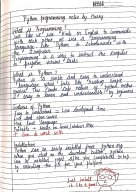 Python Programming notes by
What is Programming?
Just like we use Hindi or English to communicate
with each other, we use a Programming
language like Python to communicate with
the computer.
Programming is a way to instruct the computer
to perform various tasks.
What is Python?
Python is a simple and easy to understand
language which feels like reading simple
English. This Pseudo code nature of Python makes
easy to learn and understandable by beginners
Features of Python
Easy to understand = Less development time
Free and open source
High level language
Portable = works on Linux/windows/Mac
Installation
Python can be easily installed from python.org
When you click on the download button, python
can be installed right after you complete the setup
by executing the file for your platform
just install
it like a game